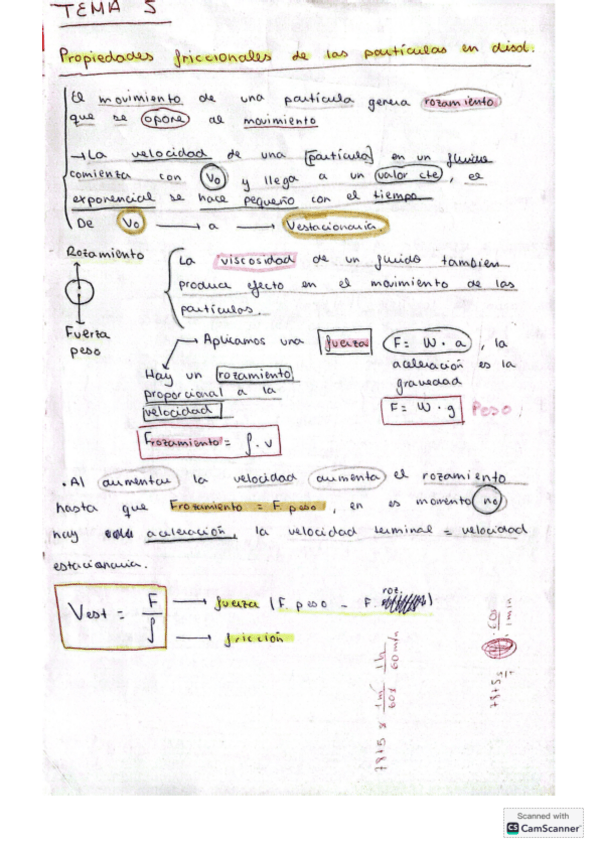 TEMA 5
Propiedades friccionales de las partículas en disol.
El movimiento de una partícula genera rozamiento
que se opone al movimiento
→ La velocidad de una [partícula] en un fluido
comienta con V0 y llega a un valor cte, el
exponencial se hace pequeño con el tiempo
De V0 → a → Vestacionaria.
Rozamiento
La viscosidad de un fluido tambien
produce efecto en el movimiento de las
partículas.
Fuerza
peso
→ Aplicamos una fuerza F = W · a, la
aceleración es la
gravedad
F = W · g Peso
Hay un rozamiento
proporcional a la
velocidad
Frozamiento = f · v
· Al aumentar la velocidad aumenta el rozamiento
hasta que Frozamiento = F. peso, en es momento no
hay aceleración, la velocidad terminal = velocidad
estacionaria.
Vest = F/f
→ fuerza (F. peso - F. roz.)
→ fricción
7875 s · 1m/60s · 1h/60min
7875 s · 60s/1min